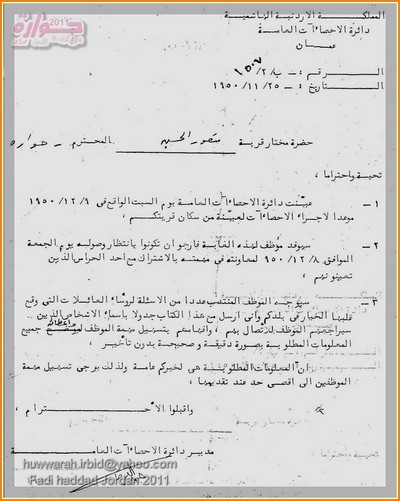 المملكة الاردنية الهاشمية
دائرة الاحصاءات العامة
عمان
الرقم : - ب/٢/١٥٠٧
التاريخ : - ١٩٥٠/١١/٢٥
حضرة مختار قرية منصور الحسين المحترم - حواره
تحية واحتراما ،
١ - عينت دائرة الاحصاءات العامة يوم السبت الواقع في ١٩٥٠/١٢/٩
موعدا لاجراء الاحصاءات لعينة من سكان قريتكم ،
٢ - سيوفد موظف لهذه الغاية فارجو ان تكونوا بانتظار وصوله يوم الجمعة
الموافق ٩٥٠/١٢/٨ لمعاونته في مهمته بالاشتراك مع احد الحراس الذين
تعينونهم ،
٣ - سيوجه الموظف المنتدب عددا من الاسئلة لرؤساء العائلات التي وقع
علينا الخيار في بلدكم واني ارسل مع هذا الكتاب جدولا باسماء الاشخاص الذين
سيراجعهم الموظف للاتصال بهم ، وافهامهم بتسهيل مهمة الموظف واعطائه جميع
المعلومات المطلوبة بصورة دقيقة و صحيحة بدون تأخير ،
ان المعلومات المطلوبة هي لخيركم عامة ولذلك يرجى تسهيل مهمة
الموظفين الى اقصى حد عند تقديمها ،
واقبلوا الاحترام ،
مدير دائرة الاحصاءات العامة
huwwarah.irbid@yahoo.com
Fadi haddad Jordan 2011
حوارة
2011